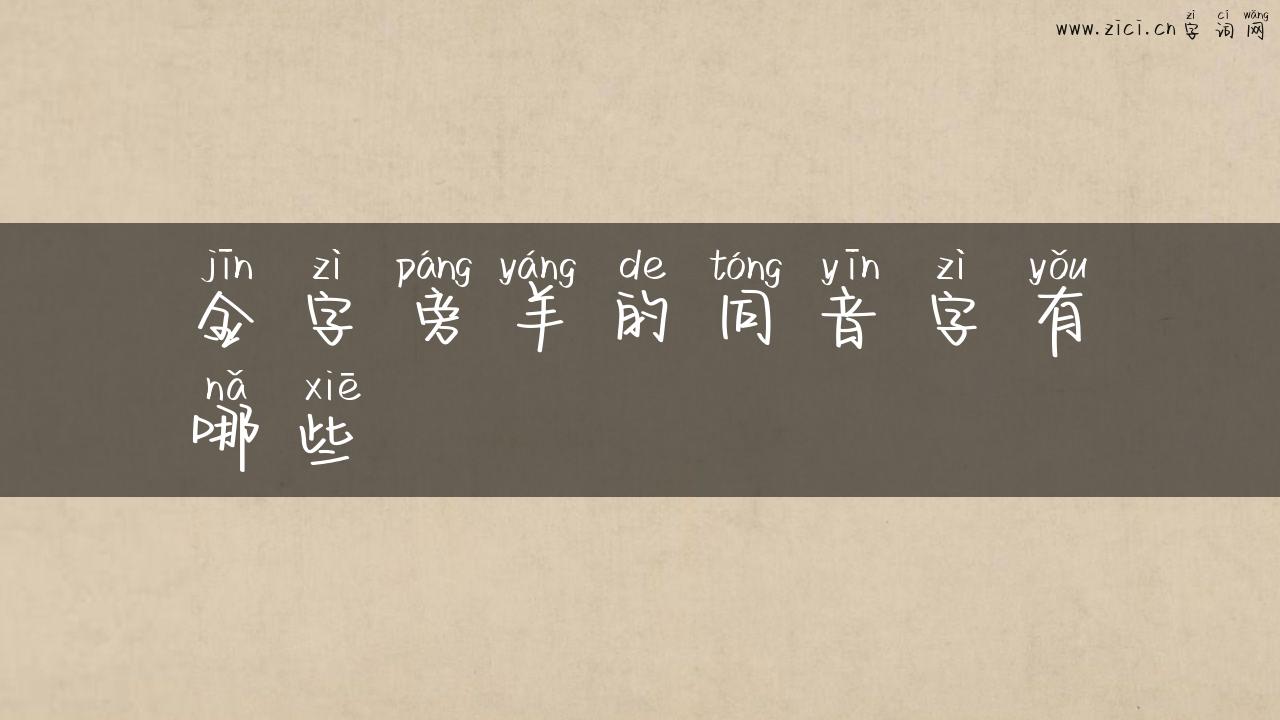 zì cí wǎng
www.zici.cn 字词网
jīn zì páng yáng de tóng yīn zì yǒu
金字旁羊的同音字有
nǎ xiē
哪些